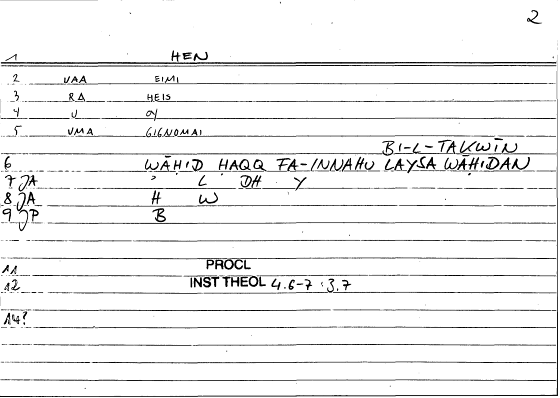 2
1 HEN
2 VAA EIMI
3 RA HEIS
4 V OY
5 VMA GIGNOMAI
BI-L-TAKWĪN
6 WĀḤID ḤAQQ FA-INNAHU LAYSA WĀḤIDAN
7 JA ʾ L DH Y
8 JA H W
9 JP B
11 PROCL
12 INST THEOL 4.6-7 : 3.7
14?